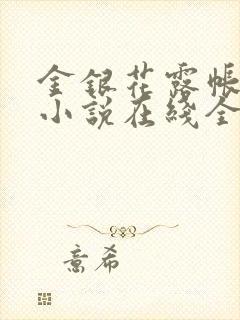 金银花露帐
小说在线全
意希